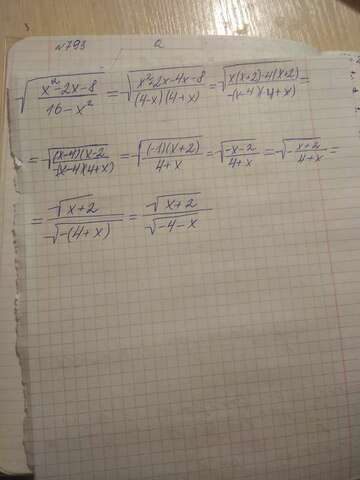 №793 а
√(x²-2x-8)/(16-x²) = √(x²+2x-4x-8)/((4-x)(4+x)) = √(x(x+2)-4(x+2))/(-(x-4)(4+x)) =
= √((x-4)(x-2)/(-(x-4)(4+x)) = √((-1)(x+2))/(4+x) = √(-x-2)/(4+x) = √-(x+2)/(4+x) =
= √(x+2)/√(-(4+x)) = √(x+2)/√(-4-x)